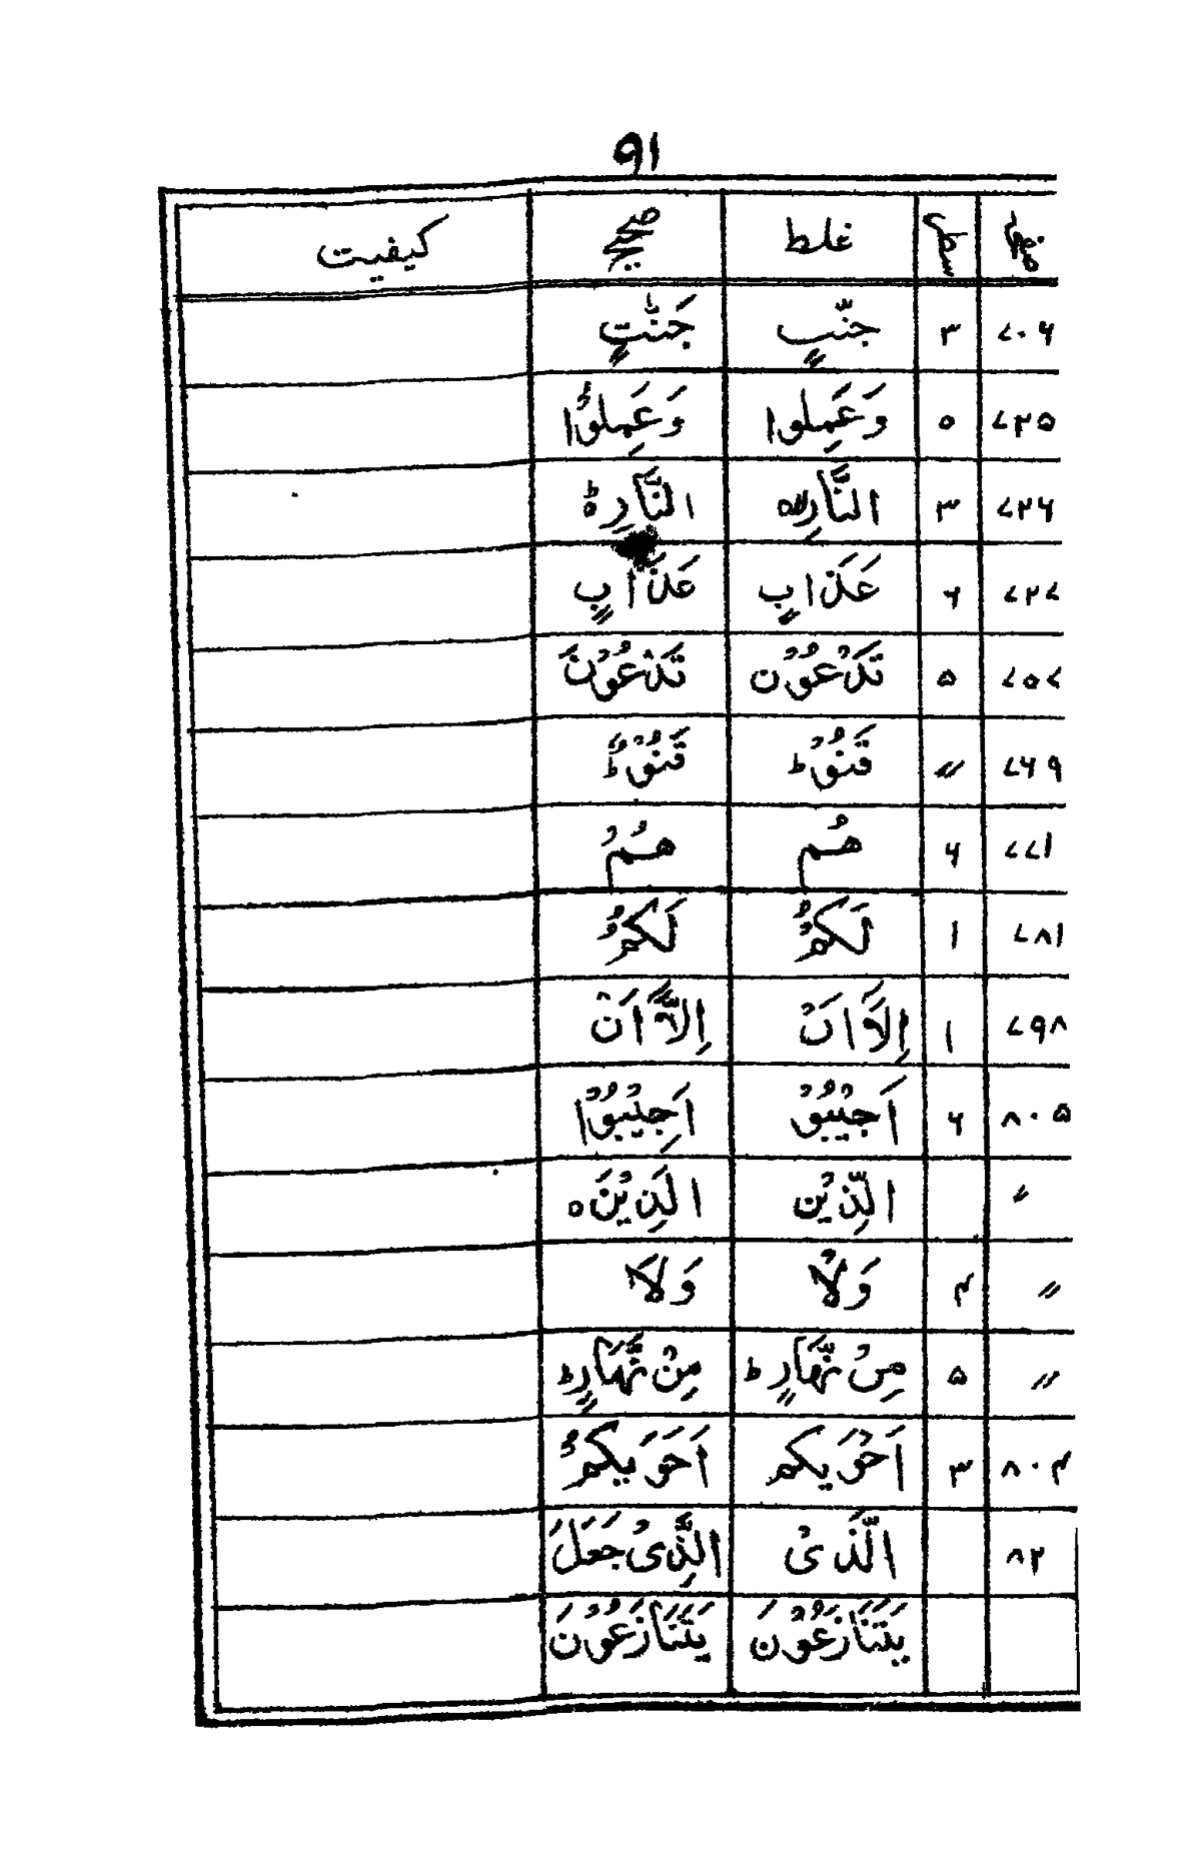 ۹۱
صفحہ سطر غلط صحیح کیفیت
۷۰۶ ۳ جنّبٍ جَنّٰتٍ
۷۲۵ ۵ وَعَمِلوا وَعَمِلُوْا
۷۲۶ ۳ النَّارِ لا النَّارِ ط
۷۲۷ ۶ عَذَابٍ عَذَابٍ
۷۵۷ ۵ تَدْعُوْن تَدْعُوْنَ
۷۶۹ 〃 قَنُوْط قَنُوْطٌ
۷۷۱ ۶ هُم هُمْ
۷۸۱ ۱ لَكُمْ لَكُمْ
۷۹۸ ۱ اِلَّا اَنْ اِلَّآ اَنْ
۸۰۵ ۶ اَجيْبُوْ اَجِيْبُوْا
〃 الّذِيْن الَّذِيْنَ ہ
〃 ۴ وَلاْ وَلَا
〃 ۵ مِنْ نَّهَارٍ ط مِنْ نَّهَارٍ ط
۸۰۴ ۳ اَخَوَيكم اَخَوَيكُمْ
۸۲ الَّذىْ الَّذِىْ جَعَلَ
يَتَنَازَعُوْنَ يَتَنَازَعُوْنَ